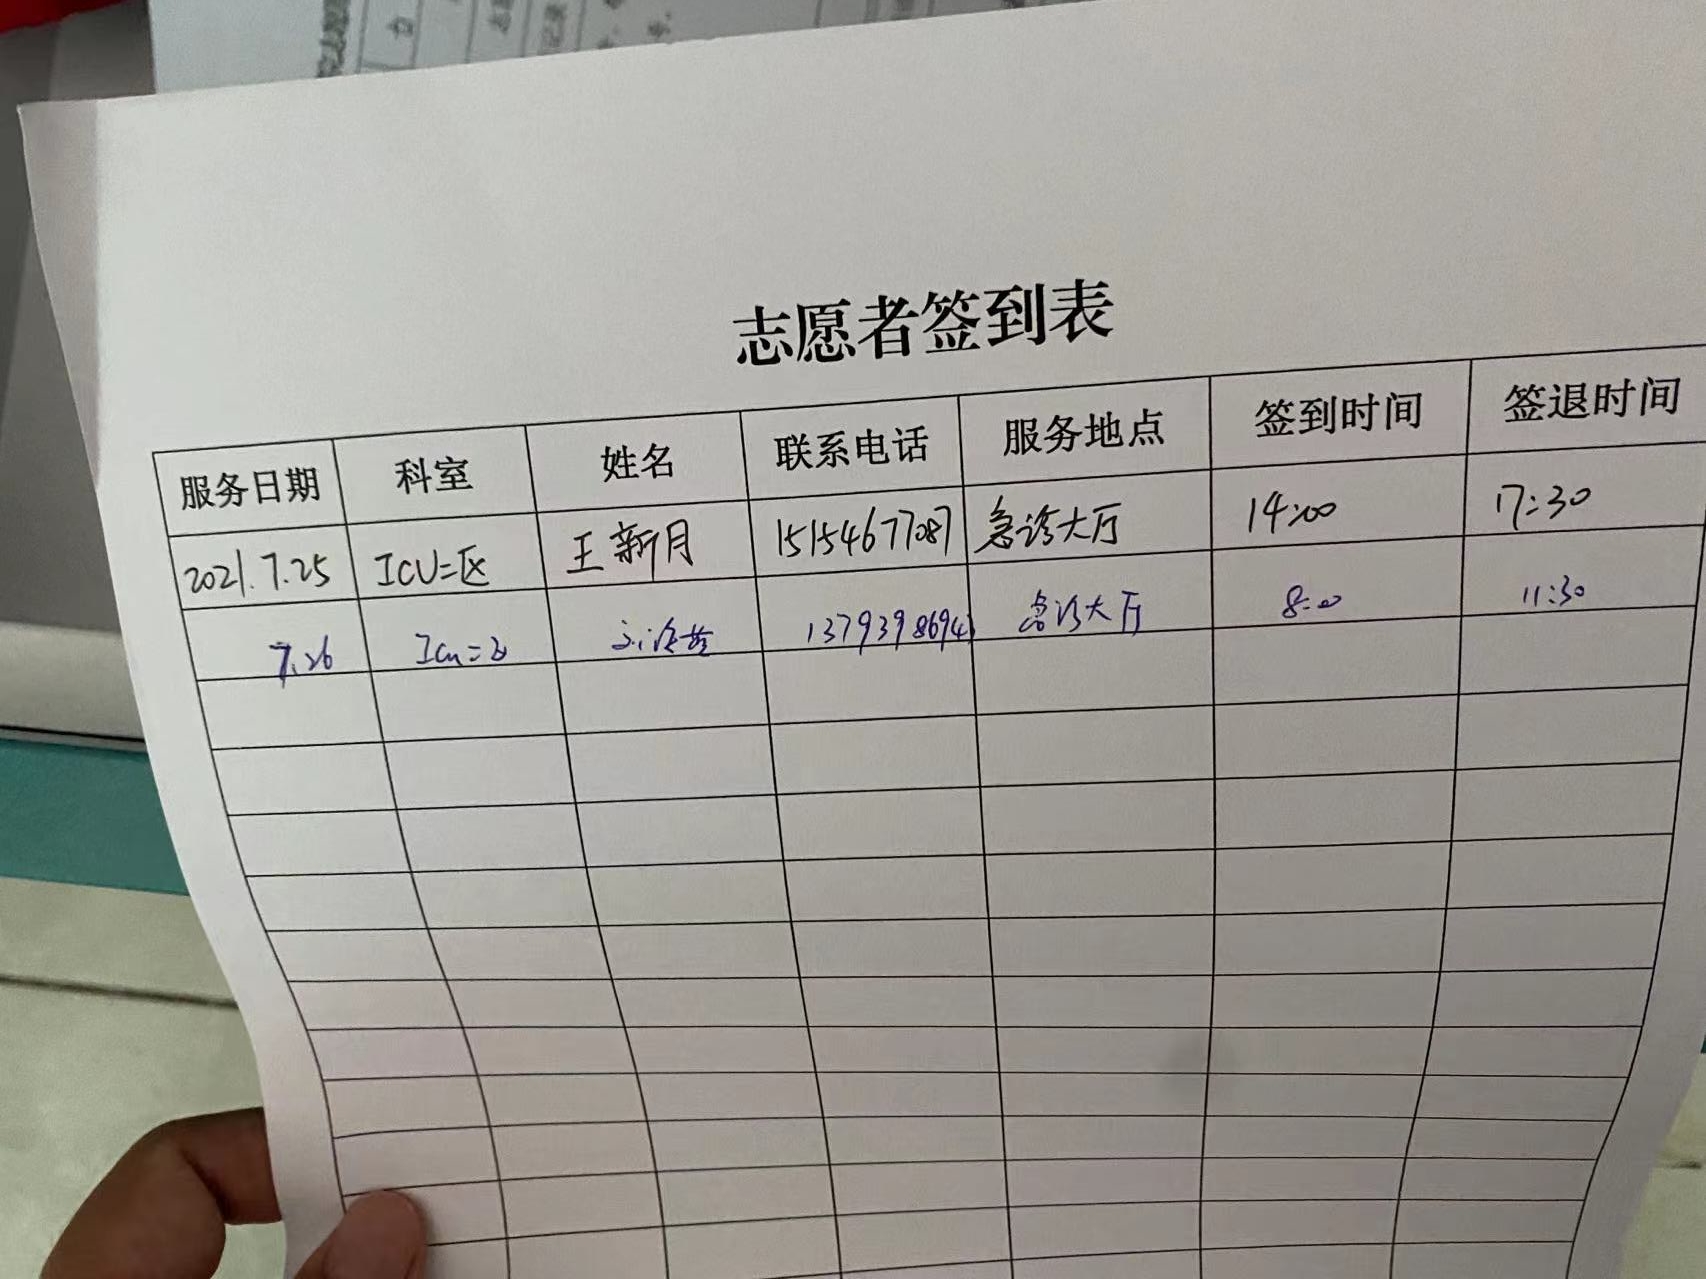 志愿者签到表
服务日期 科室 姓名 联系电话 服务地点 签到时间 签退时间
2021.7.25 ICU二区 王新月 15154677087 急诊大厅 14:00 17:30
7.26 Icu二区 1379398694 急诊大厅 8:00 11:30